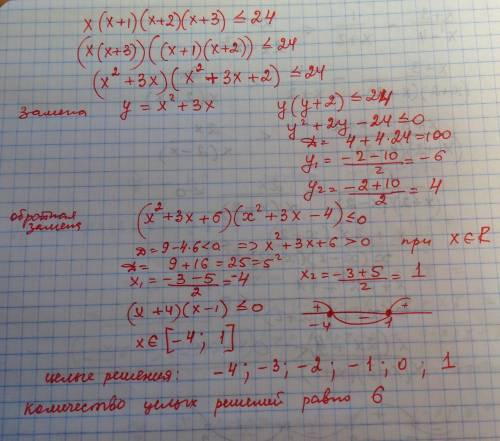 x(x+1)(x+2)(x+3) ≤ 24
(x(x+3))((x+1)(x+2)) ≤ 24
(x²+3x)(x²+3x+2) ≤ 24
Замена y = x²+3x y(y+2) ≤ 24
y²+2y-24 ≤ 0
D = 4+4·24=100
y₁ = (-2-10)/2 = -6
y₂ = (-2+10)/2 = 4
обратная замена (x²+3x+6)(x²+3x-4) ≤ 0
D = 9-4·6<0 => x²+3x+6 > 0 при x∈R
D = 9+16=25=5²
x₁ = (-3-5)/2 = -4 x₂ = (-3+5)/2 = 1
(x+4)(x-1) ≤ 0 + - +
-4 1
x∈[-4; 1]
целые решения: -4; -3; -2; -1; 0; 1
количество целых решений равно 6